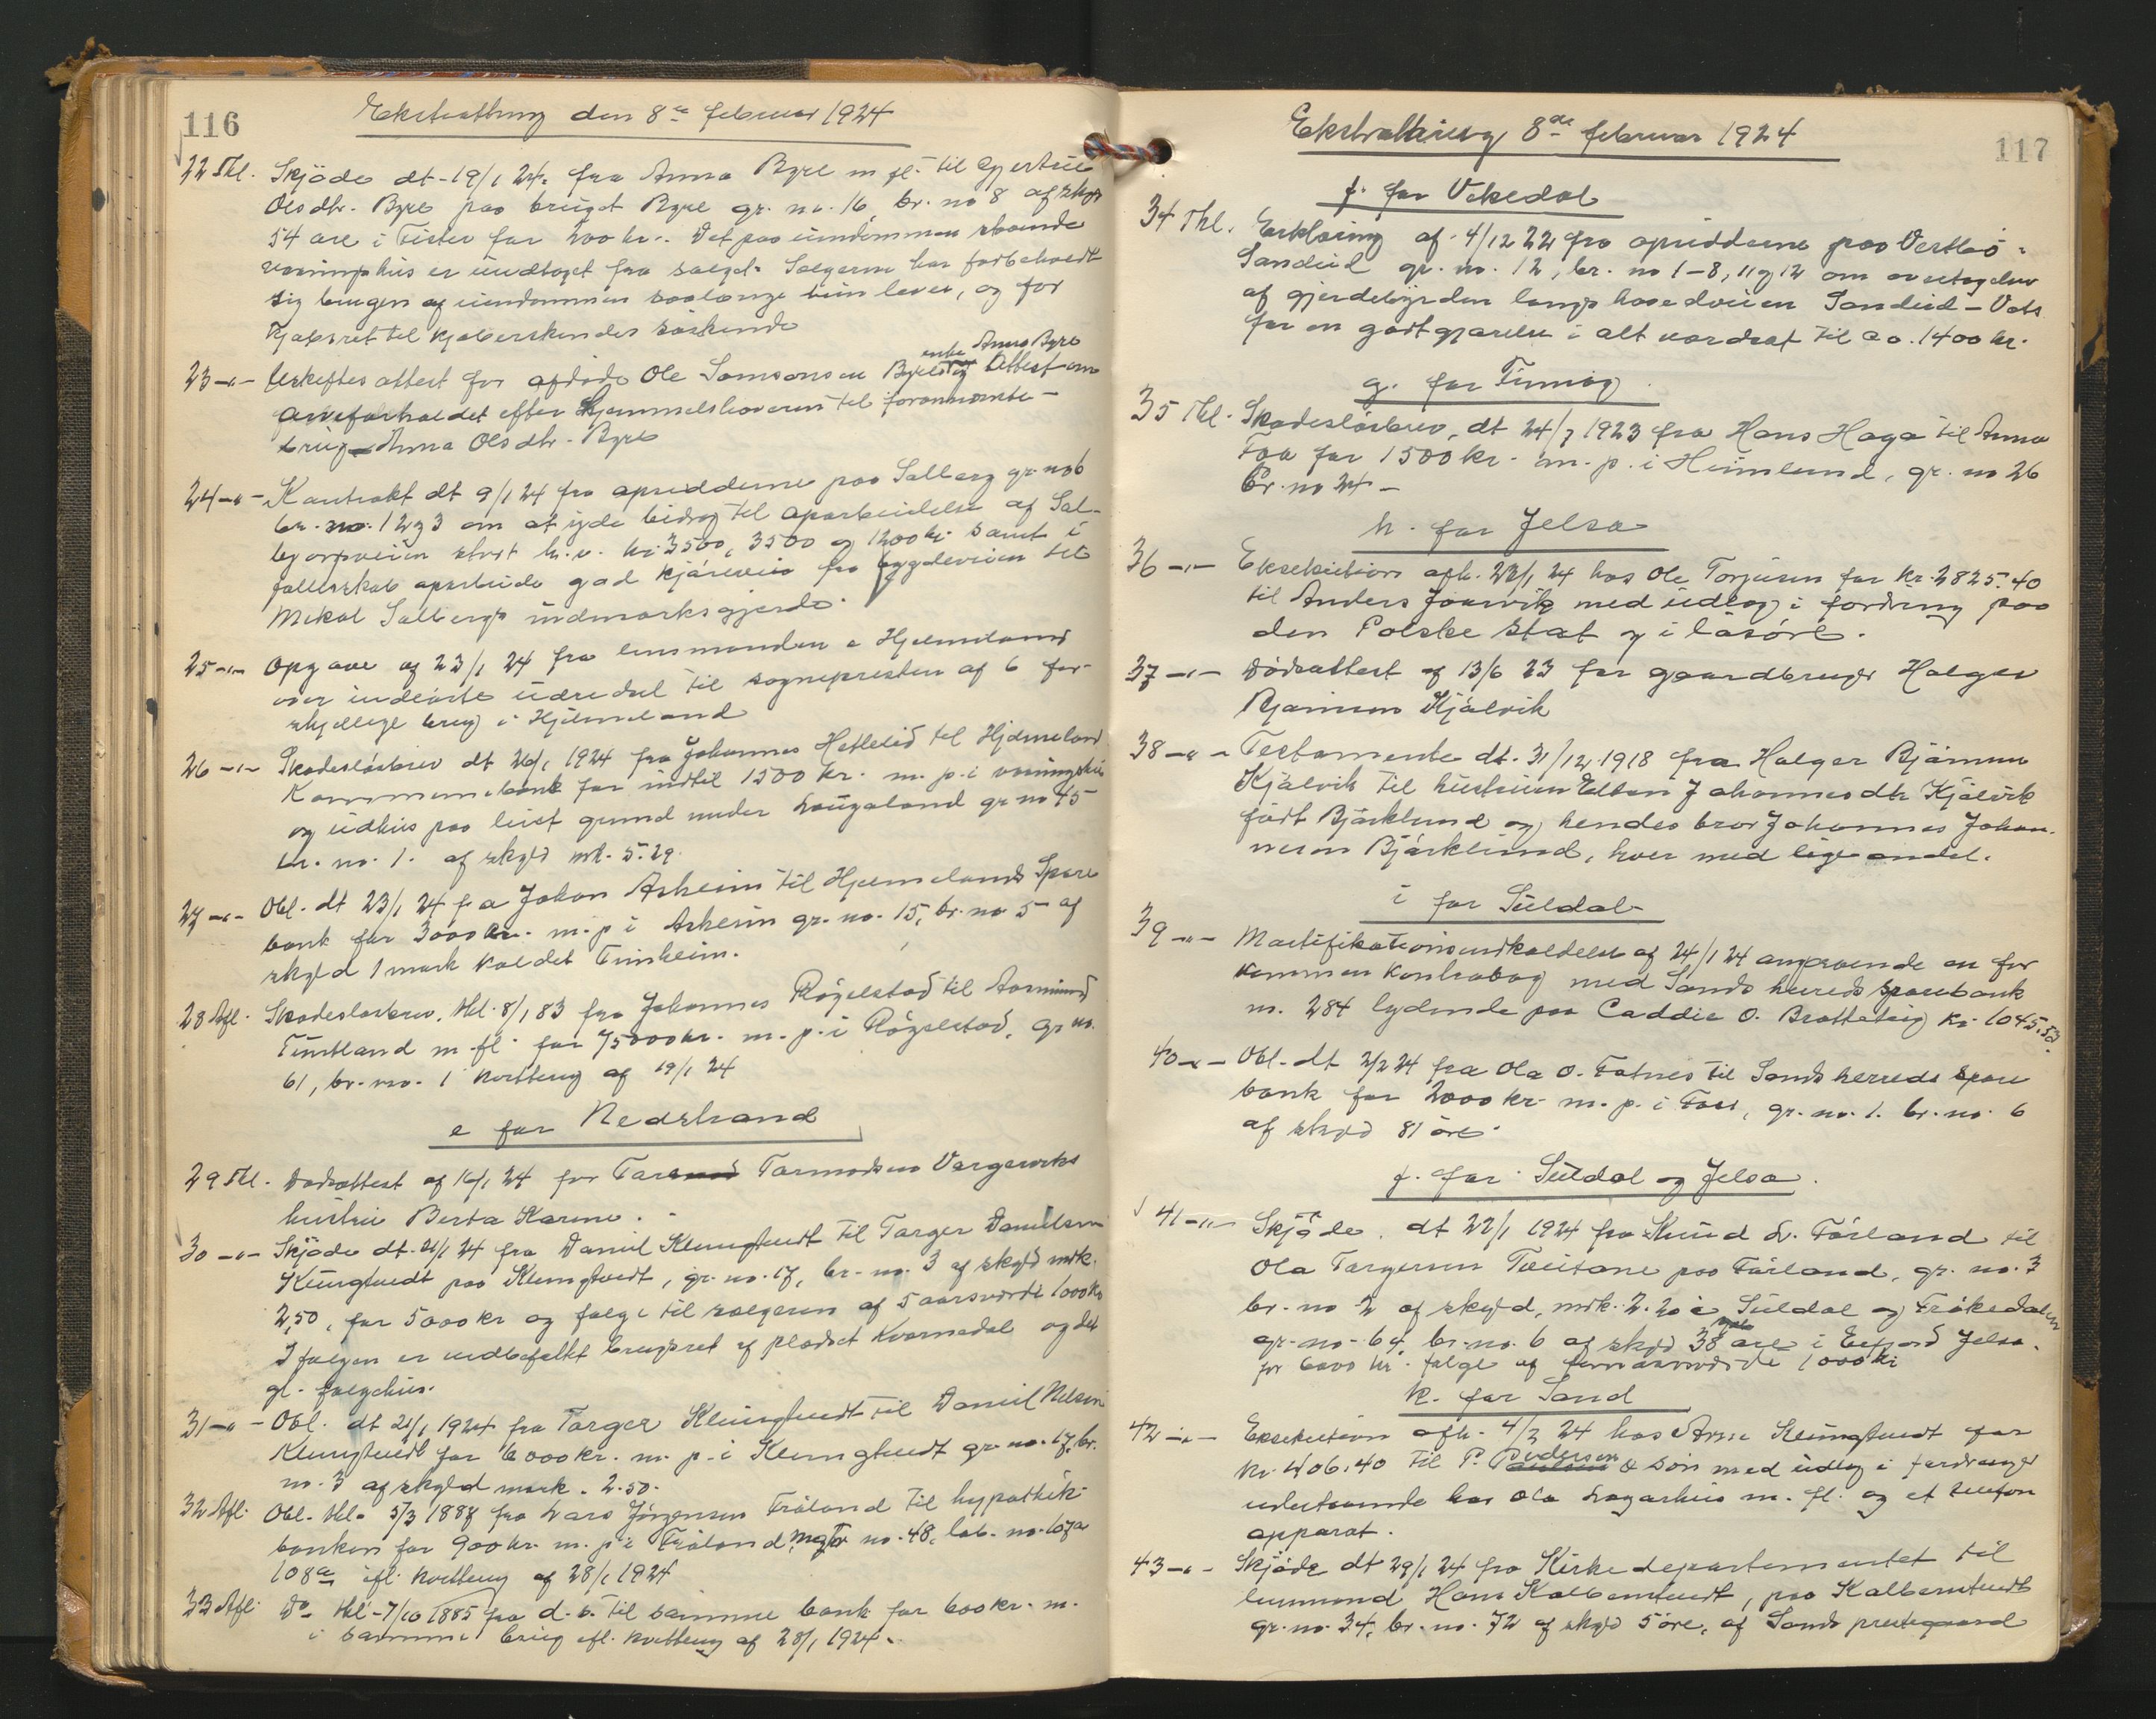 116
Ekstratthing den 8de februar 1924
22 Thl. Skjøde dt. 19/1 24 fra Anna Byre m fl. til Gjertrue
Olsdtr. Byre paa bruget Byre gr. no. 16, br. no 8 af skyld
54 øre i Fister for 200 kr. Det paa eiendommen staaende
vaaningshus er undtaget fra salget. Selgeren har forbeholdt
sig brugen af eiendommen saalænge hun lever, og for
kjøbsret til kjøberskendes søskende
enke Anna Byre
23 -"- Uskiftesattest for afdøde Ole Samsonsen Byre Attest om
arveforholdet efter Hjemmelshaveren til forannævnte
brug Anna Olsdtr. Byre
24 -"- Kontrakt dt 9/1 24 fra opsidderne paa Salberg gr. no 6
br. no. 1 2 og 3 om at yde bidrag til oparbeidelse af Sal-
bergsveien stort h.v. kr. 3500, 3500 og 1200 kr. samt i
fællesskab oparbeide god kjørevei fra bygdeveien til
Mikal Salbergs indmarksgjerde.
25 -"- Opgave af 23/1 24 fra lensmanden i Hjelmeland
over indløste utredsel til sognepresten af 6 for-
skjellige brug i Hjelmeland
26 -"- Skadesløsbrev dt 26/1 1924 fra Johannes Hetleli til Hjelmeland
Kommunebank for indtil 1500 kr. m. p. i vaaningshus
og udhus paa leiet grund under Laugaland gr no 45
br. no. 1. af skyld mk. 5.29.
27 -"- Obl. dt 23/1 24 fra Johan Askeim til Hjelmelands Spare
bank for 3000 kr. m. p i Askeim gr. no. 15, br. no 5 af
skyld 1 mark kaldet Tunheim.
28 Afl. Skadesløsbrev, thl. 8/1 83 fra Johannes Røgelstad til Aamund
Tuntland m fl. for 75000 kr. m. p. i Røgelstad, gr no.
61, br. no. 1 kvittering af 19/1 24
e for Nedstrand
29 Thl. Dødsattest af 16/1 24 for Tormodsen Vargeviks
hustru Berta Karine.
30 -"- Skjøde dt. 21/1 24 fra Daniel Klungtvedt til Torger Danielsen
Klungtvedt paa Klungtvedt, gr. no. 17, br. no. 3 af skyld mrk.
2,50, for 5000 kr og følge til sælgeren af 5 aarsværdi 1000 kr
I følgen er indbefattet brugsret af pladset Kvernedal og det
gl. følgehus.
31 -"- Obl. dt 21/1 1924 fra Torger Klungtvedt til Daniel Nelsen
Klungtvedt for 6000 kr. m. p. i Klungtvedt gr. no. 17, br.
no. 3 af skyld mark. 2.50.
32 Afl. Obl. thl. 5/3 1888 fra Lars Jørgensen Frøland til hypothek
banken for 900 kr. m. p. i Frøland, no. 48, løb. no. 107a
108a ifl. kvittering af 28/1 1924
33 Afl. Do thl. 7/10 1885 fra d. s. til samme bank for 600 kr. m.
i samme brug ifl. kvittering af 28/1 1924.
Ekstratthing 8de februar 1924
117
f. for Vikedal
34 Thl. Erklæring af 4/12 22 fra opsidderne paa Vestbø
Sandeid gr. no. 12, br. no 1-8, 11 og 12 om overtagelse
af gjerdebyrden langs hovedveien Sandeid - Vats
for en godtgjørelse i alt vurdert til ca. 1400 kr.
g. for
35 Thl. Skadesløsbrev, dt 24/7 1923 fra Hans Haga til Anna
Foa for 1500 kr. m. p. i Heimlund, gr. no 26
br. no 24 -
h. for Jelsa
36 -"- Eksekution afh. 22/1 24 hos Ole Torjusen for kr. 2825.40
til Anders Joarvik med udlæg i fordring paa
den Polske stat og i løsøre.
37 -"- Dødsattest af 13/6 23 for gaardbruger Holger
Bjørnsen Kjølvik
38 -"- Testamente dt. 31/12 1918 fra Holger Bjørnsen
Kjølvik til hustruen Ellen Johannesdtr Kjølvik
født Bjørklund og hendes bror Johannes Johan-
nesen Bjørklund, hver med lige andel.
i for Suldal
39 -"- Mortifikationsindkaldelse af 24/1 24 angaaende en for
kommen Kontrabog med Sands herreds sparebank
n. 284 lydende paa Caddie O. Bratteteig kr. 1045.53.
40 -"- Obl. dt 2/2 24 fra Ola O. Fatnes til Sands herreds spare
bank for 2000 kr. m. p. i Foss, gr. no. 1. br. no. 6
af skyld 81 øre.
j. for Suldal og Jelsa.
41 -"- Skjøde. dt 22/1 1924 fra Knud L. Førland til
Ola Torgersen Tveitane paa Førland, gr. no. 3
br. no 2 af skyld, mrk. 2.20 i Suldal og Frøkedalen
gr. no. 64 br. no. 6 af skyld 38 øre i Erfjord Jelsa.
for 6000 kr. følge af femaarsværdi 1000 kr
k. for Sand
42 -"- Eksekution afh. 4/2 24 hos Arne Klungtvedt for
kr. 406.40 til P. Pedersen & søn med udlæg i fordringer
udestaaende hos Ola Lagarhus m. fl. og et telefon
apparat.
43 -"- Skjøde dt 29/1 24 fra Kirkedepartementet til
lensmand Hans Kolbentvedt, paa Kolbentvedt
gr. no. 34, br. no. 72 af skyld 5 øre, af Sands prestegaard